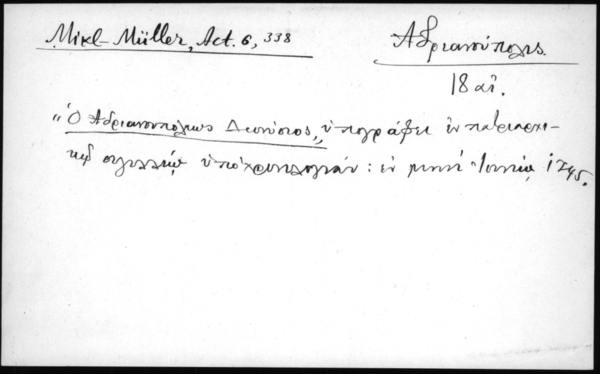 Mikl-Müller, Act. 6, 338
Ἀδριανούπολις
18 αἰ.
"Ὁ Ἀδριανουπόλεως Διονύσιος,, ὑπογράφει ἐν πατριαρχι-
κῷ σιγιλλίῳ ὑπὸ χρονολογίαν: ἐν μηνὶ Ἰουνίῳ 1745.